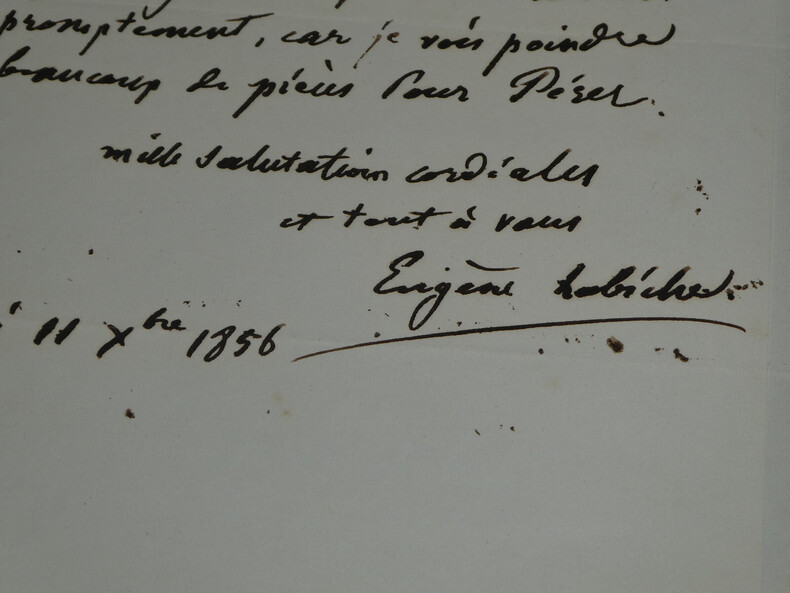 promptement, car je vois poindre
beaucoup de pièces pour Péres.
mille salutation cordiales
et tout à vous
Eugène Labiche.
11 Xbre 1856